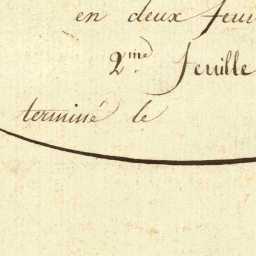 en deux feui
2me. feuille
terminé le